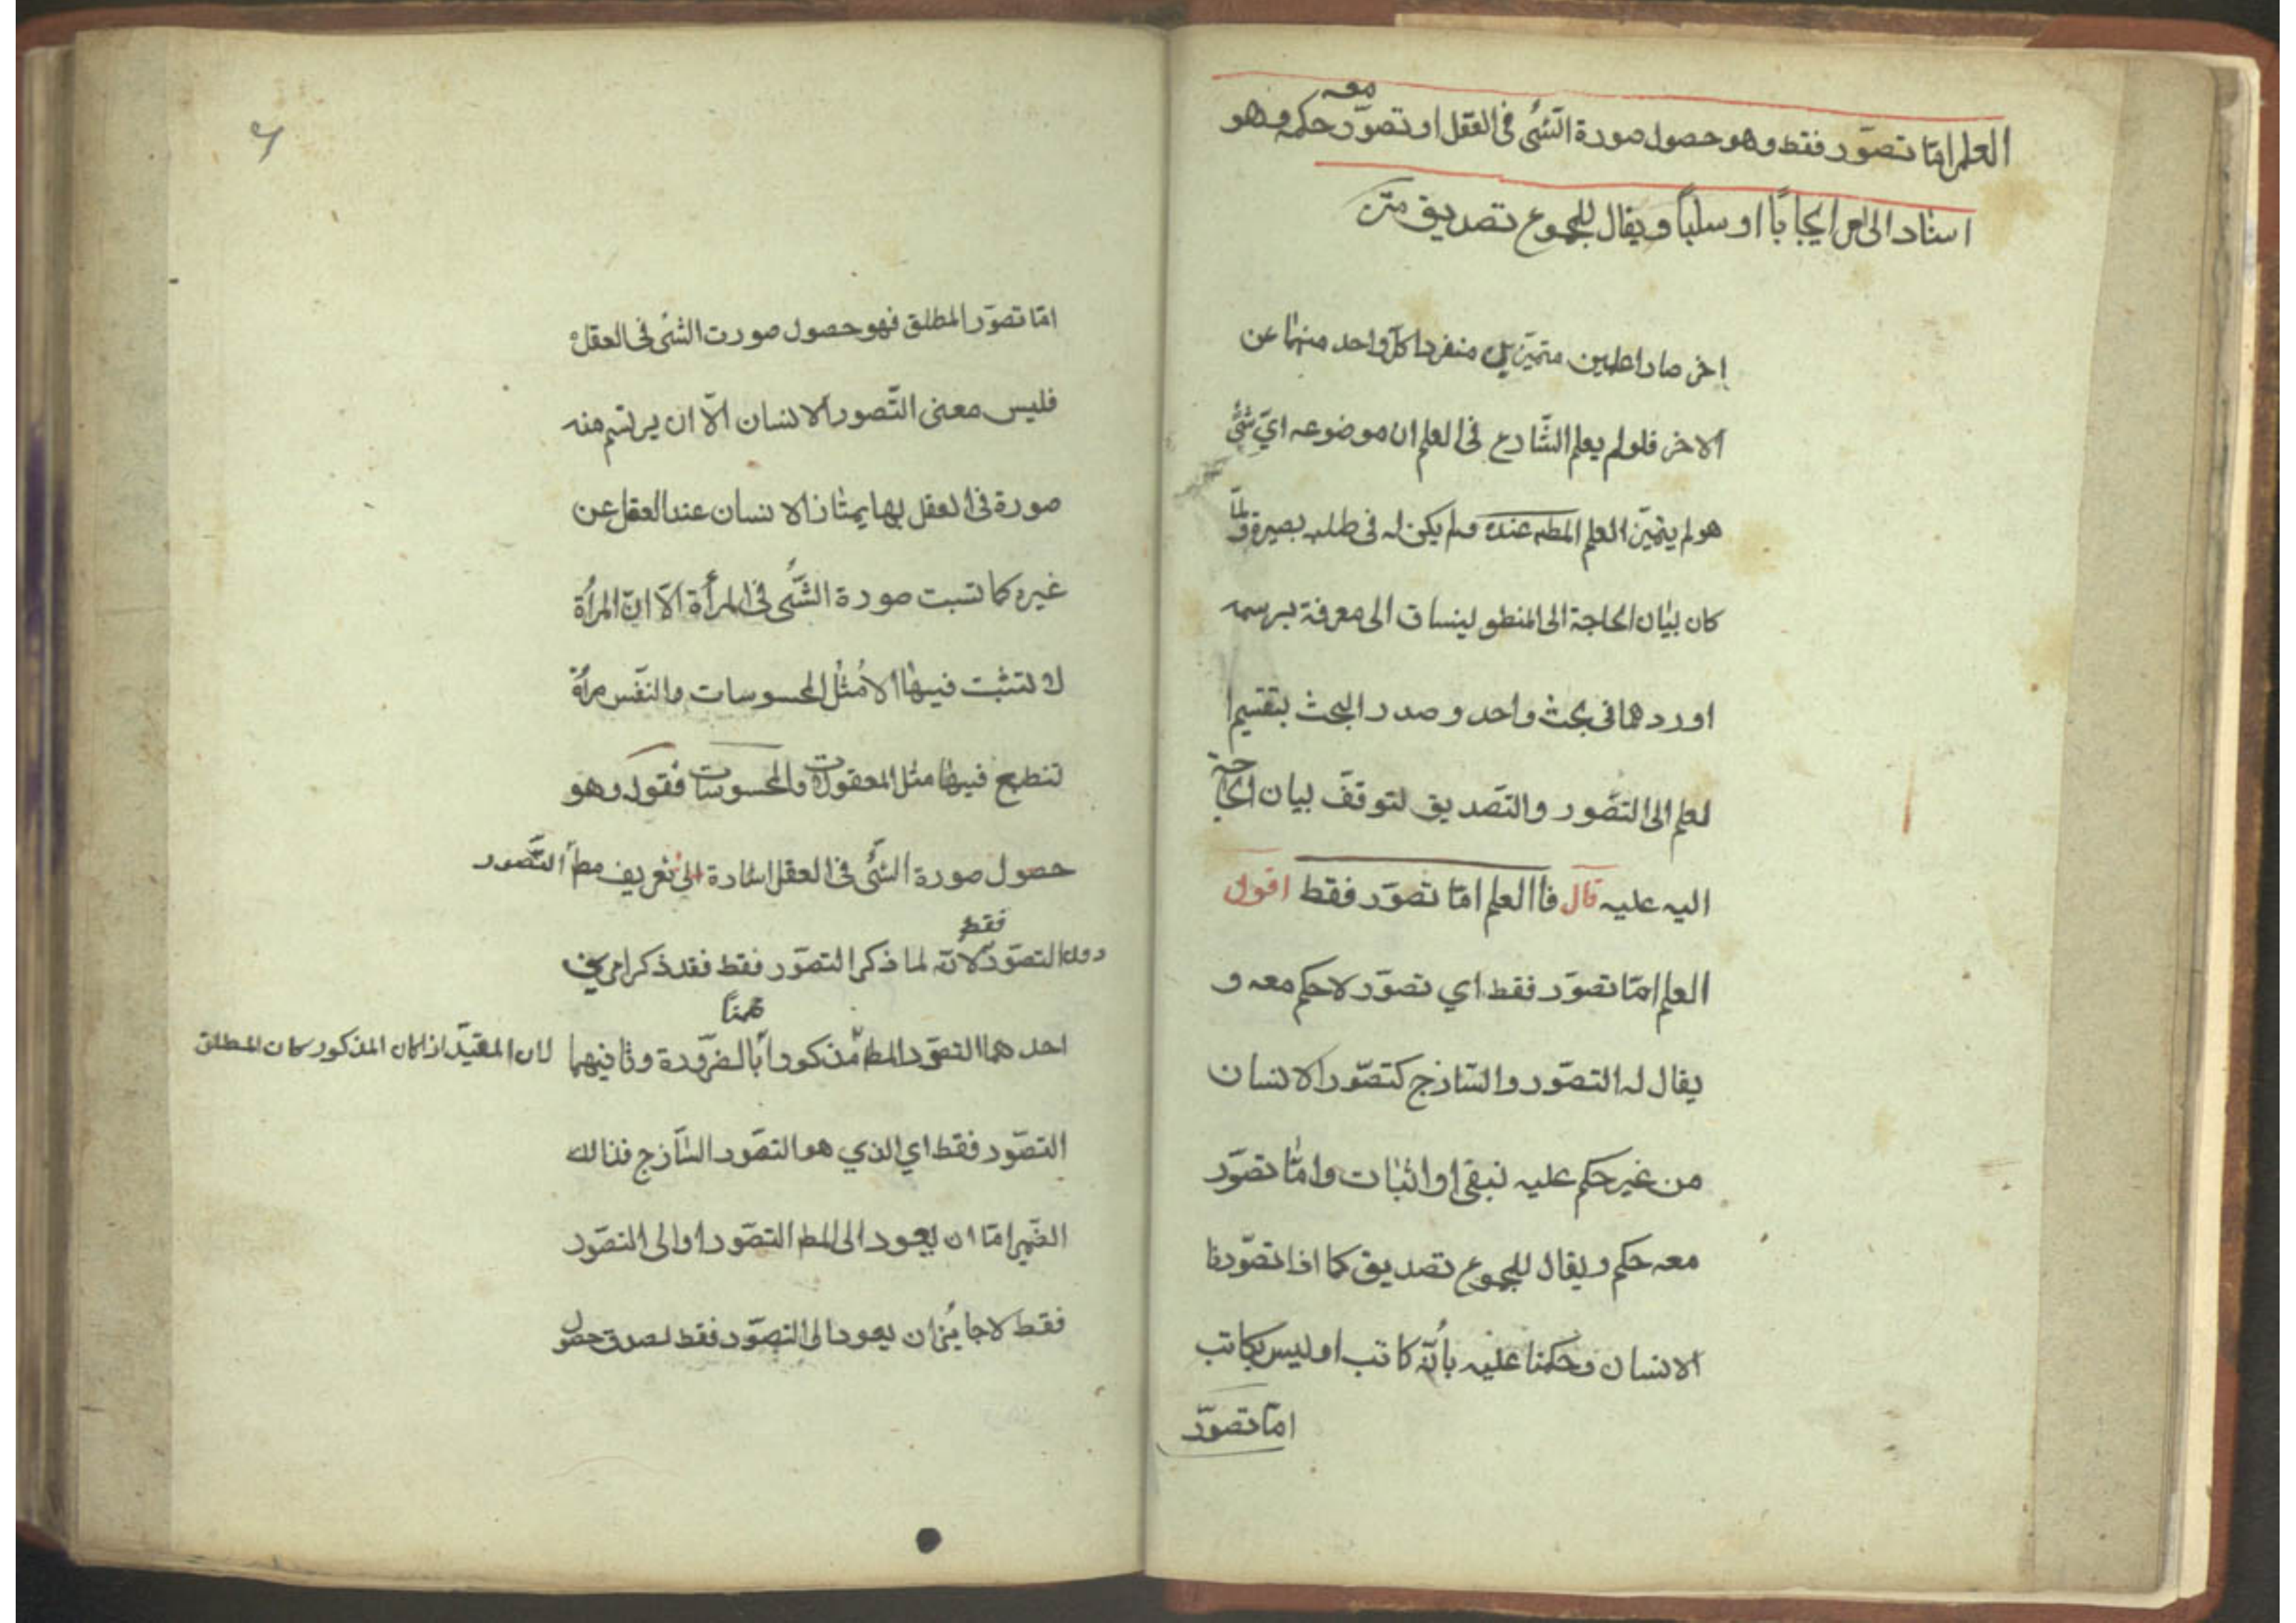 العلم امّا تصوّر فقط وهو حصول صورة الشّئ فى العقل او تصوّر معه حكم وهو
اسناد الى ايجاباً او سلباً ويقال للمجموع تصديق متن
اخر صارا علمين متميّزين منفردا كلّ واحد منهما عن
الاخر فلو لم يعلم الشّارع فى العلم ان موضوعه ايّ شئ
هو لم يتميّز العلم المط عنده ولم يكن له فى طلبه بصيرة ولمّا
كان بيان الحاجة الى المنطق لينساق الى معرفة برسمه
اوردهما فى بحث واحد وصدر البحث بتقسيم ا
لعلم الى التصّور والتّصديق لتوقفّ بيان الحاجة
اليه عليه قال فاالعلم امّا تصوّر فقط اقول
العلم امّا تصوّر فقط اي تصوّر لا حكم معه و
يقال له التصوّر والسّازج كتصّور الانسان
من غير حكم عليه نبقى او اثبات وامّا تصوّر
معه حكم ويقال للمجموع تصديق كما اذا تصوّرنا
الانسان وحكمنا عليه بأنّه كاتب او ليس بكاتب
امّا تصوّر
امّا تصوّر المطلق فهو حصول صورت الشئ فى العقل
فليس معنى التّصور الانسان الّا ان يرتسم منه
صورة فى العقل بها يمتاز الانسان عند العقل عن
غيره كما تسبت صورة الشّئ فى المرأة الّا انّ المرأة
لا تتثبت فيها الا مُثُل المحسوسات والنفّس مرأة
تنطبع فيها مثل المعقولات والمحسوسات فقوله وهو
حصول صورة الشّئ فى العقل اشارة الى تعريف مط التّصور
دون التصوّر فقط لانّه لما ذكر التصوّر فقط فقد ذكر امرين
احدهما التصوّر المط مذكورا بالضرّورة وثانيهما ضمناً
لان المقيّد اذا كان المذكور كان المطلق
التصّور فقط اي الذي هو التصّور السّازج فذالك
الضّمير امّا ان يعود الى المط التصّور او الى التصّور
فقط لا جايُز ان يعود الى التصّور فقط لصدق حصول